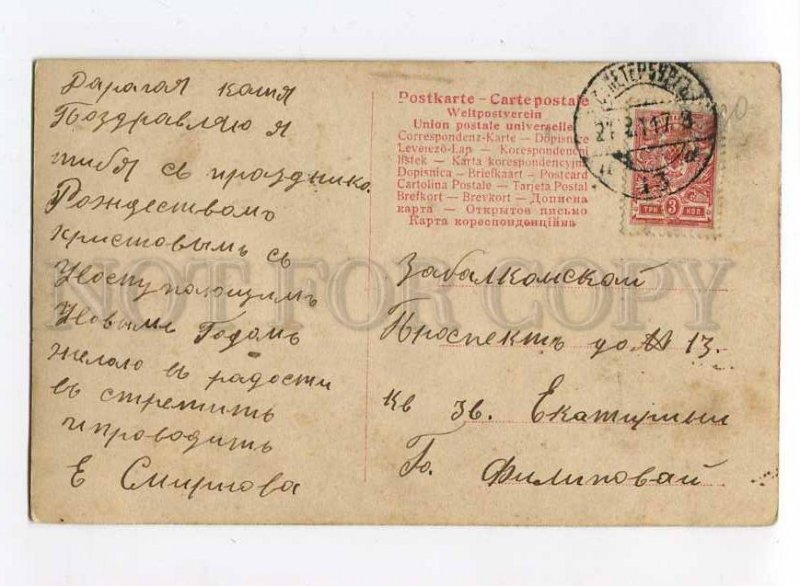 Дарагая катя
Поздравляю я
тибя съ праздникo.
Рождествомъ
Кристовымъ съ
Уноступающимъ
Новыме Годомъ
желаю въ радости
въ стретить
и проводить
Е Смирнова
Postkarte – Carte postale
Weltpostverein
Union postale universelle
Correspondenz-Karte – Dopisnice
Levelező-Lap – Korespondencni
listek – Karta korespondencyjna
Dopisnica – Briefkaart – Postcard
Cartolina Postale – Tarjeta Postal
Brefkort – Brevkort – Дописна
карта – Открытое письмо
Карта кореспонденційна
С.ПЕТЕРБУРГЪ
ТРИ 3 КОП
Забалконской
Проспектъ до № 13.
кв 3в. Екатирини
Го. Филиповай
NOT FOR COPY